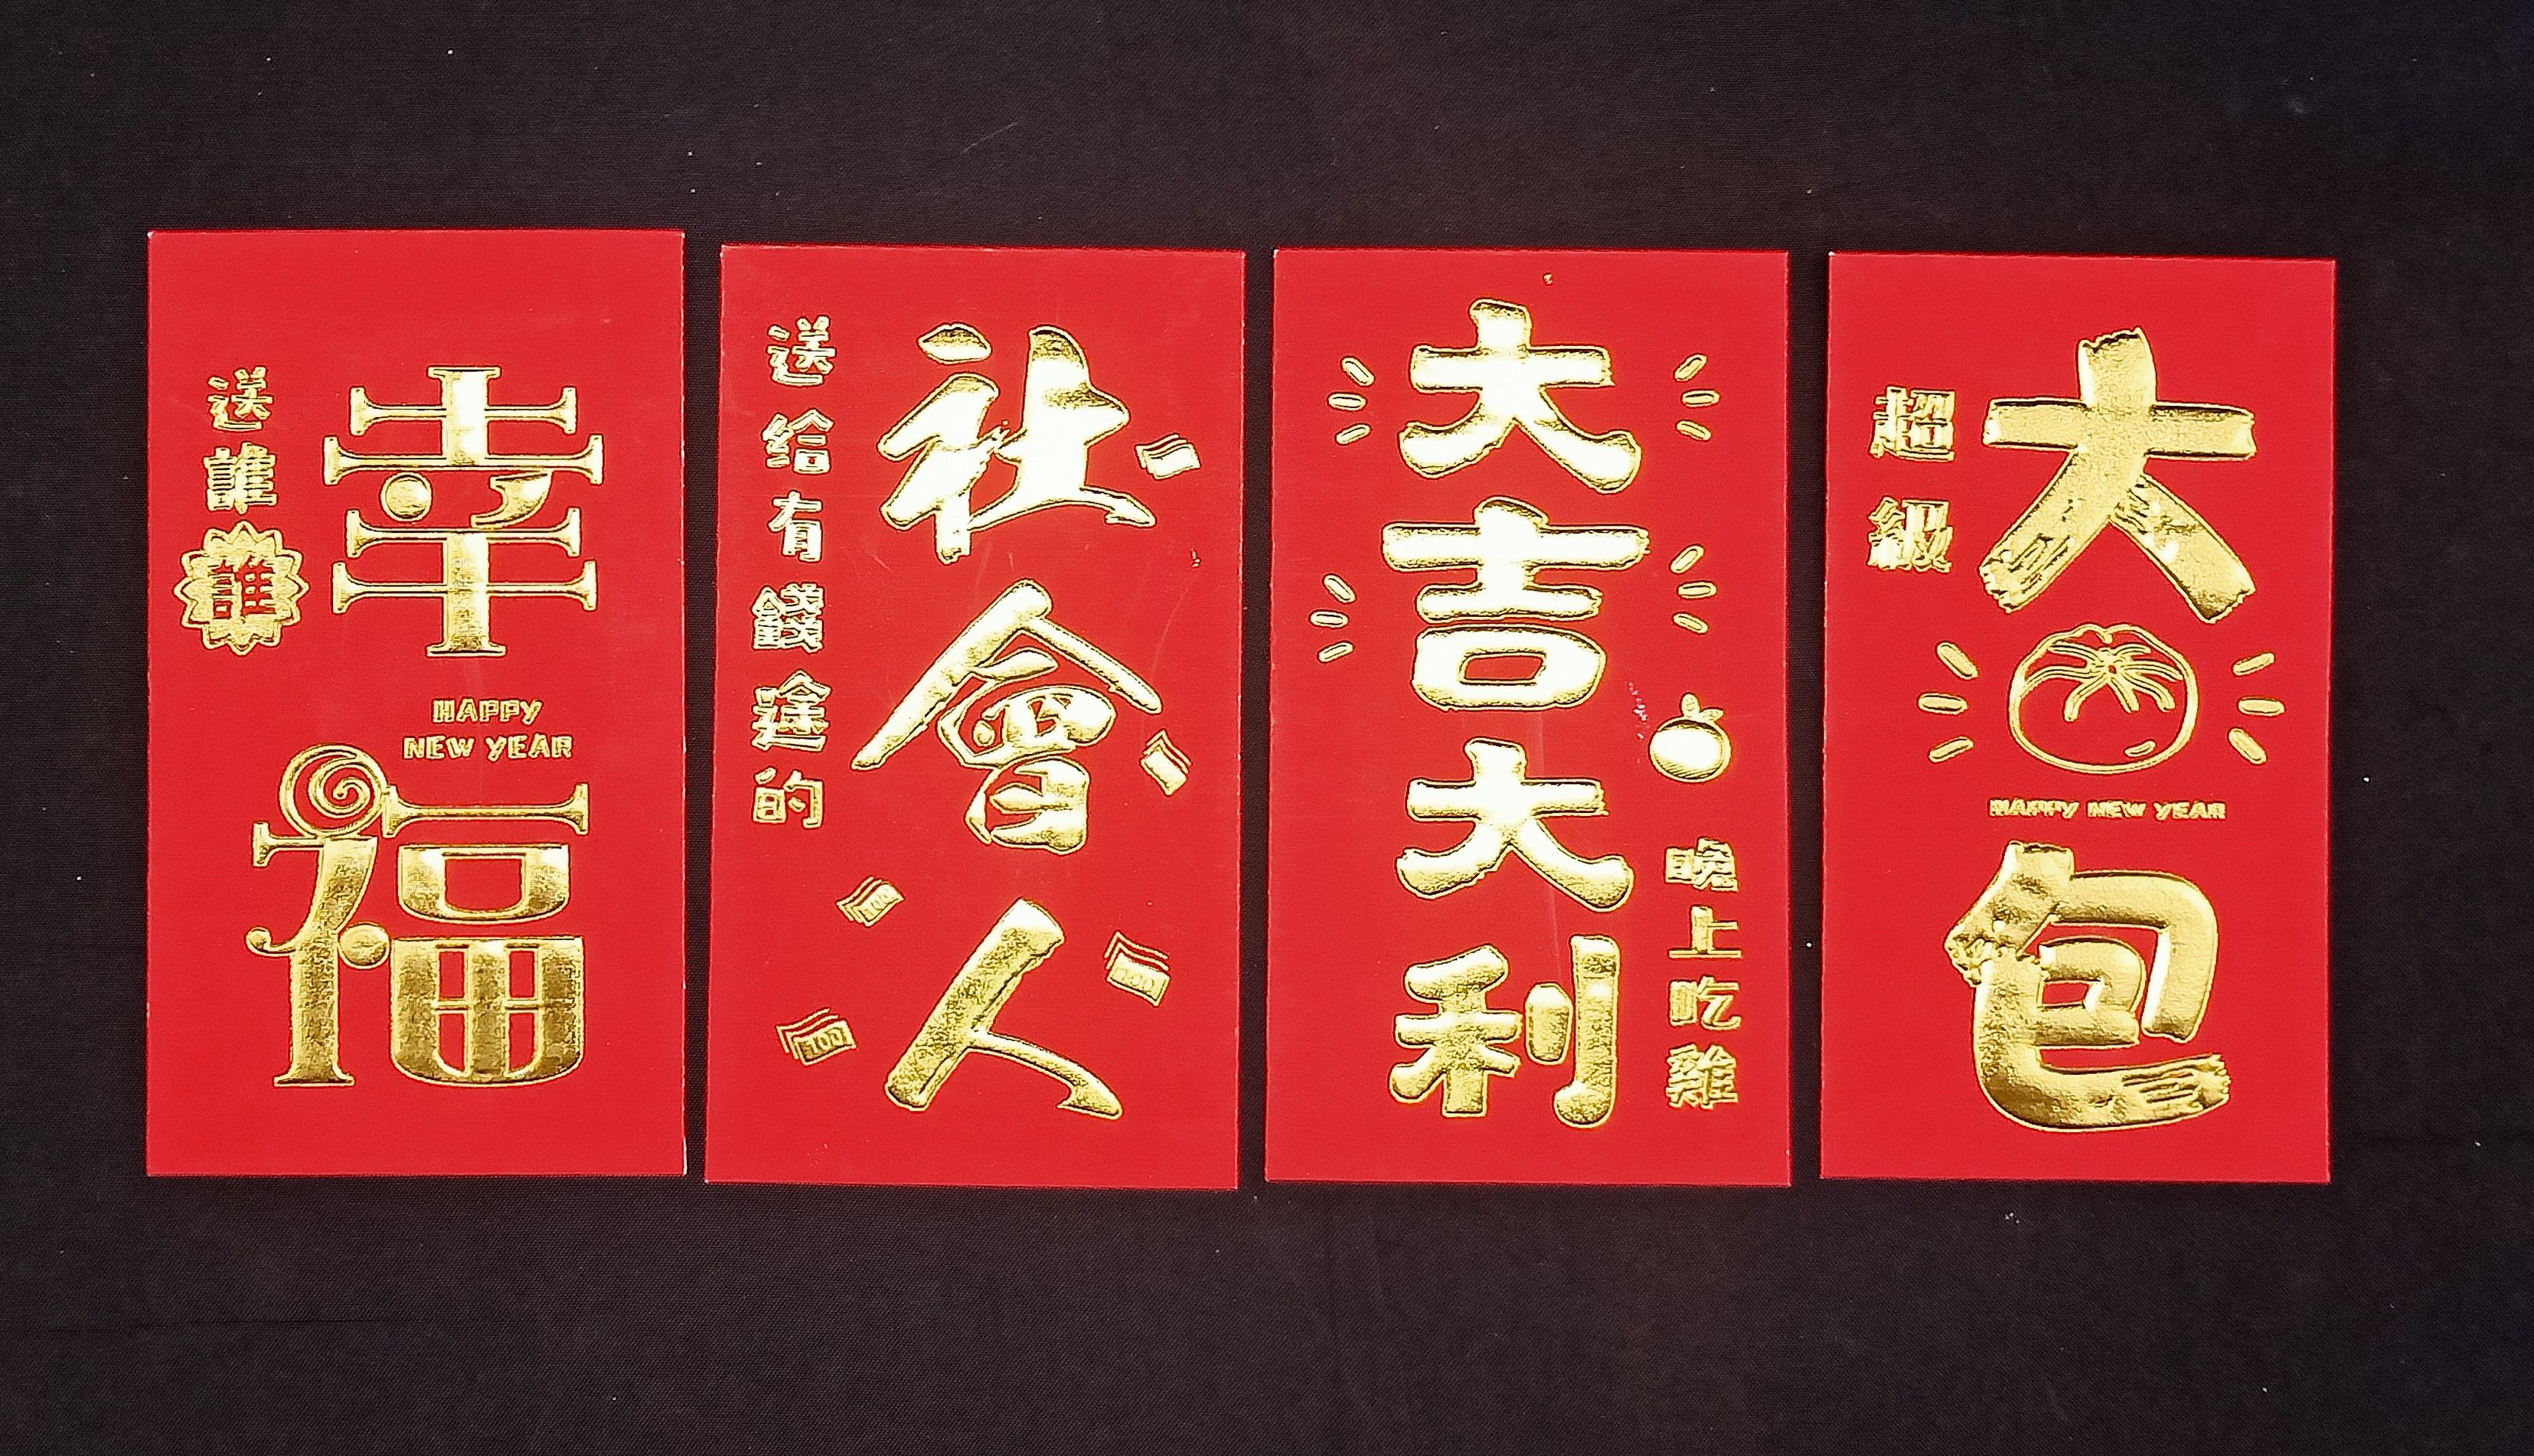 送誰誰
幸福
HAPPY
NEW YEAR
送给有錢途的
社會人
100
100
100
大吉大利
晚上吃雞
超級
大包
HAPPY NEW YEAR